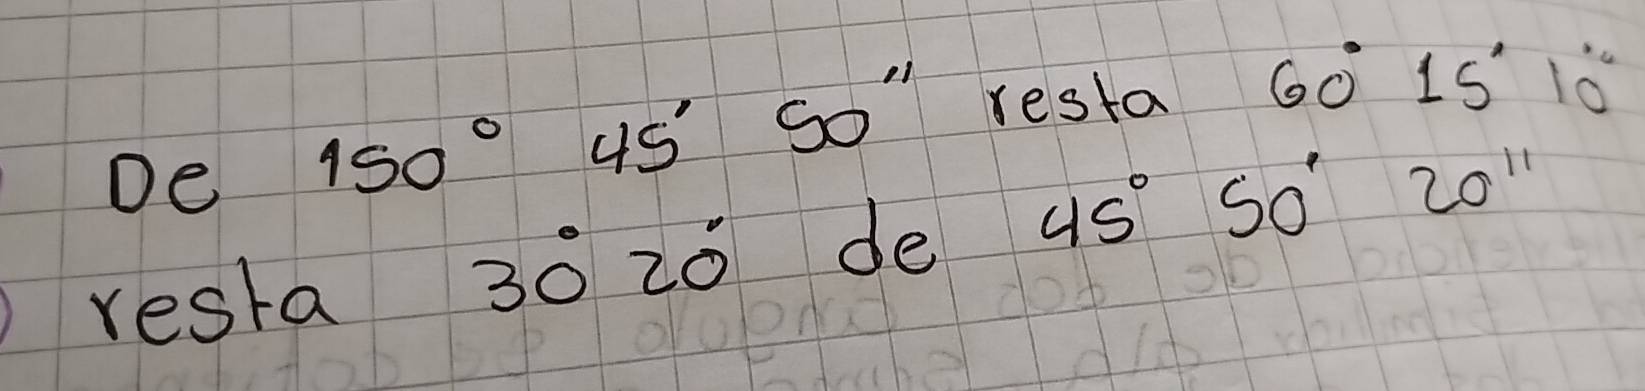 De 150° 45' 50" resta 60° 15' 10"
resta 30° 20' de 45° 50' 20"